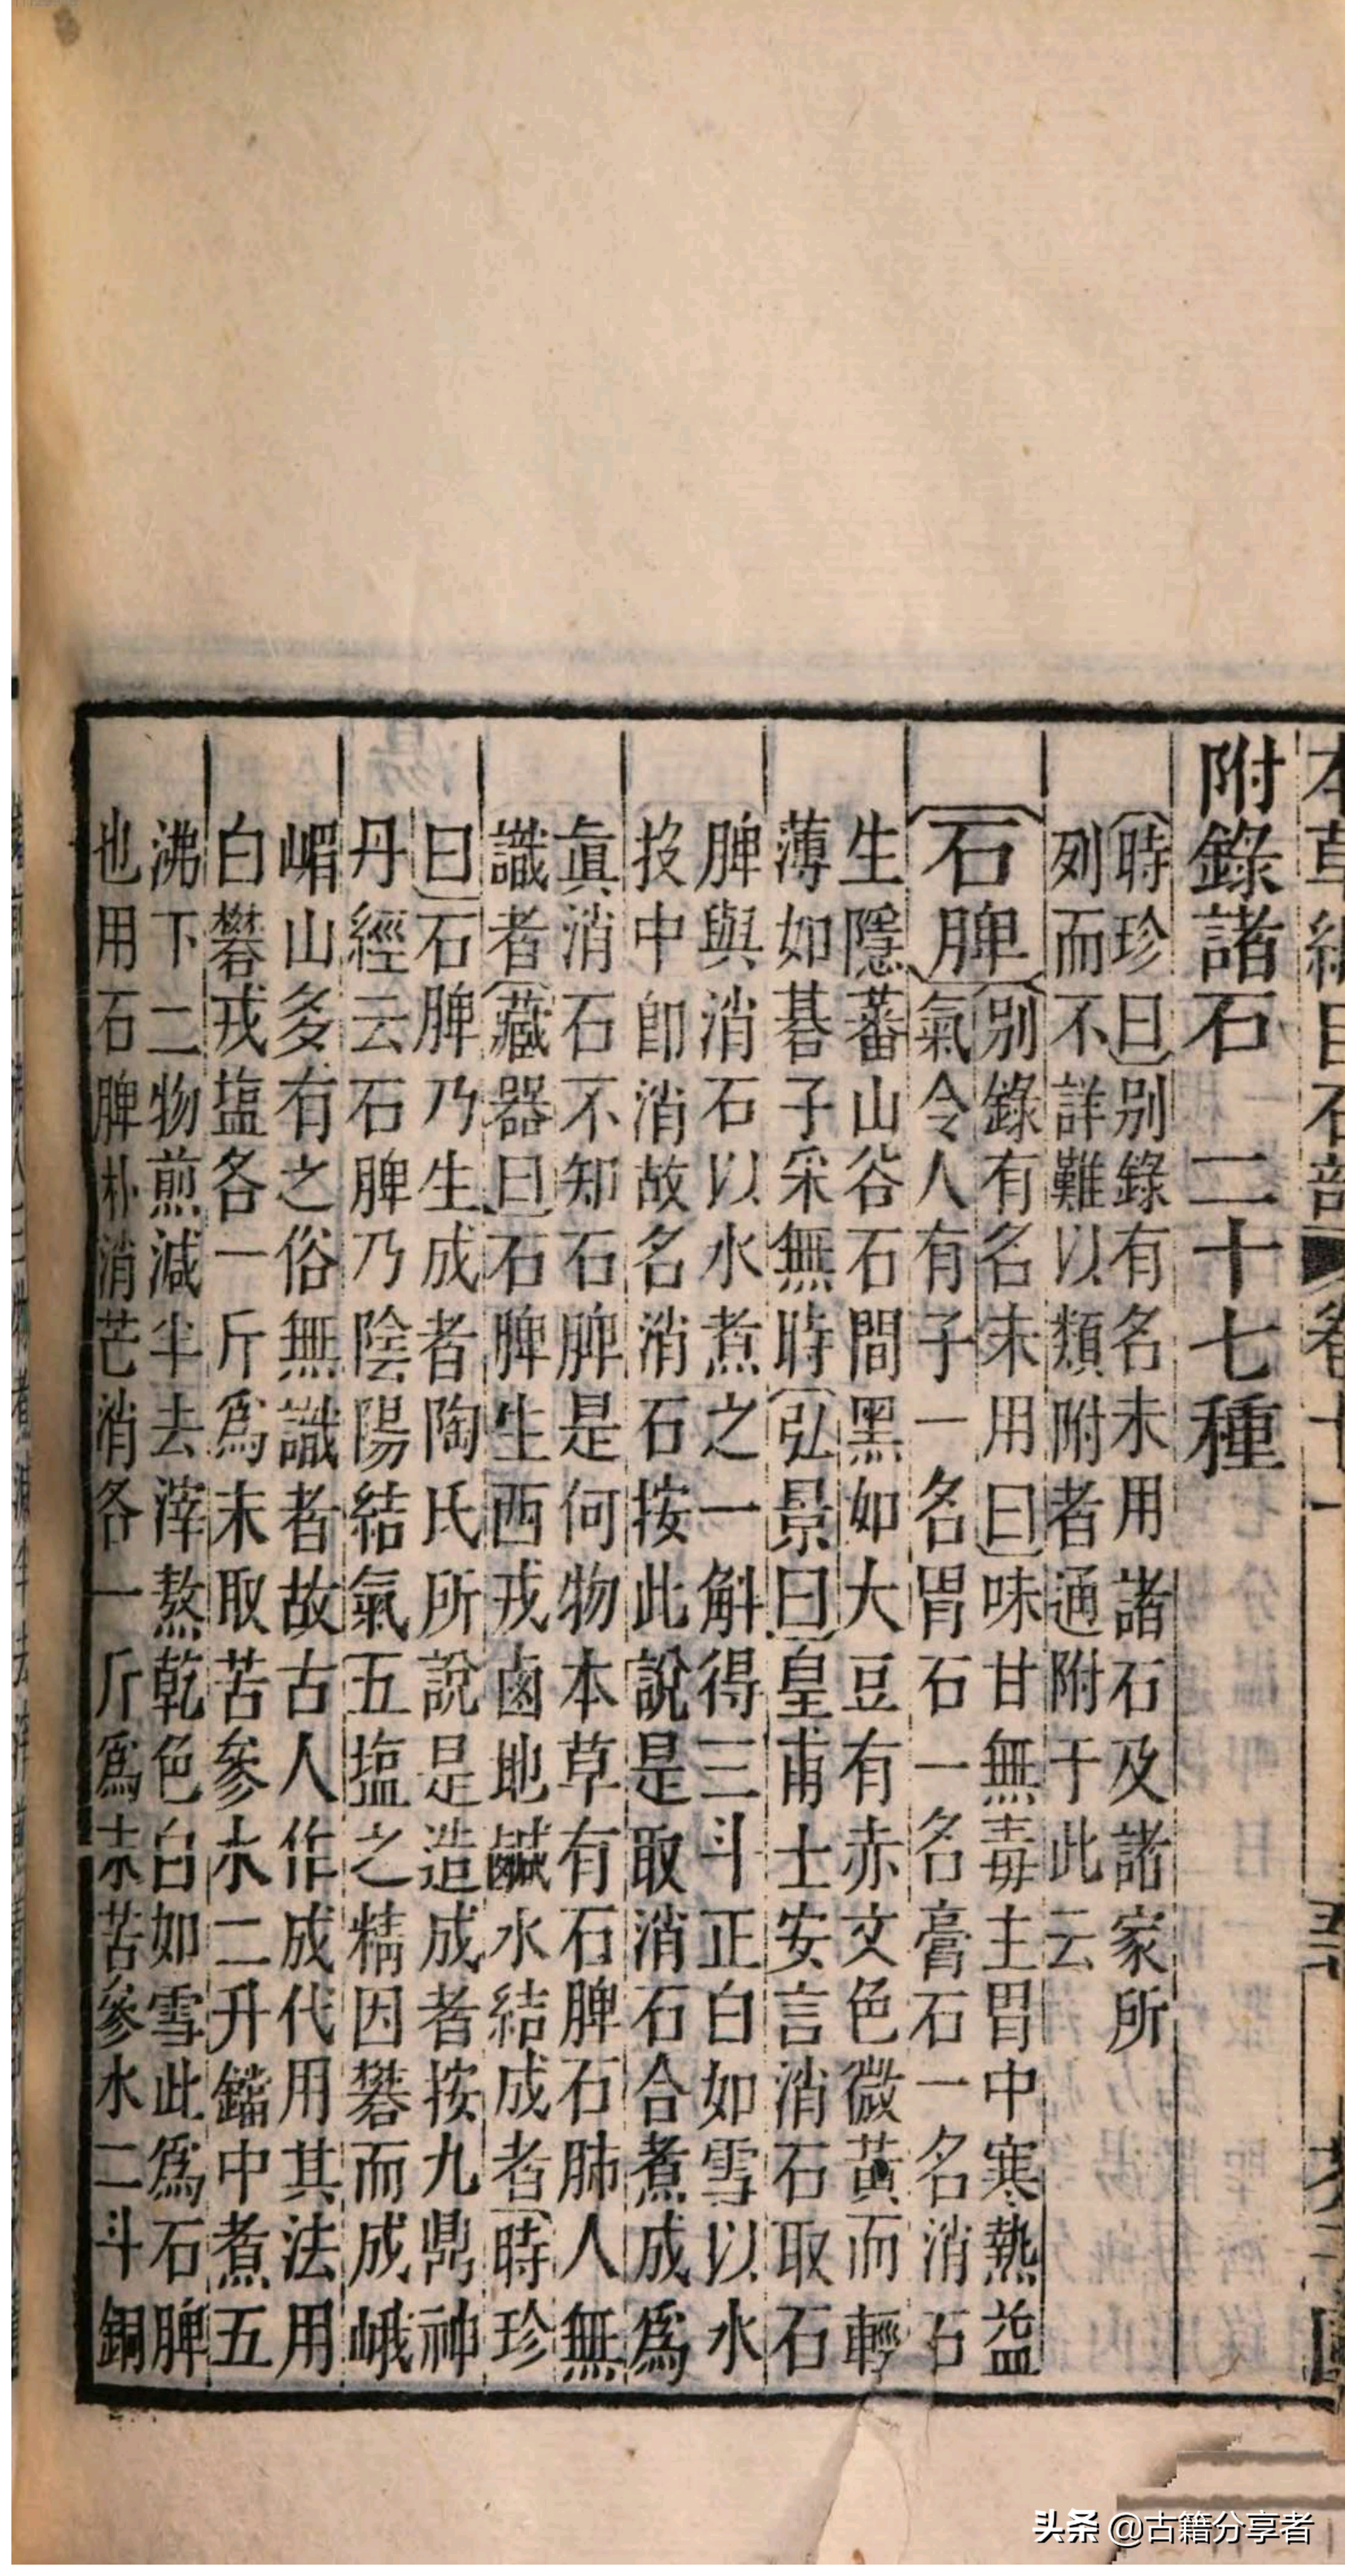 附錄諸石 二十七種
時珍曰別錄有名未用諸石及諸家所
列而不詳難以類附者通附于此云
石脾
別錄有名未用曰味甘無毒主胃中寒熱益
氣令人有子一名胃石一名膏石一名消石
生隱蕃山谷石間黑如大豆有赤文色微黃而輕
薄如碁子采無時弘景曰皇甫士安言消石取石
脾與消石以水煮之一斛得三斗正白如雪以水
投中即消故名消石按此說是取消石合煮成爲
眞消石不知石脾是何物本草有石脾石肺人無
識者藏器曰石脾生西戎鹵地鹹水結成者時珍
曰石脾乃生成者陶氏所說是造成者按九鼎神
丹經云石脾乃陰陽結氣五塩之精因礬而成峨
嵋山多有之俗無識者故古人作成代用其法用
白礬戎塩各一斤爲末取苦參水二升鐺中煮五
沸下二物煎減半去滓熬乾色白如雪此爲石脾
也用石脾朴消芒消各一斤爲末苦參水二斗銅
頭条 @古籍分享者